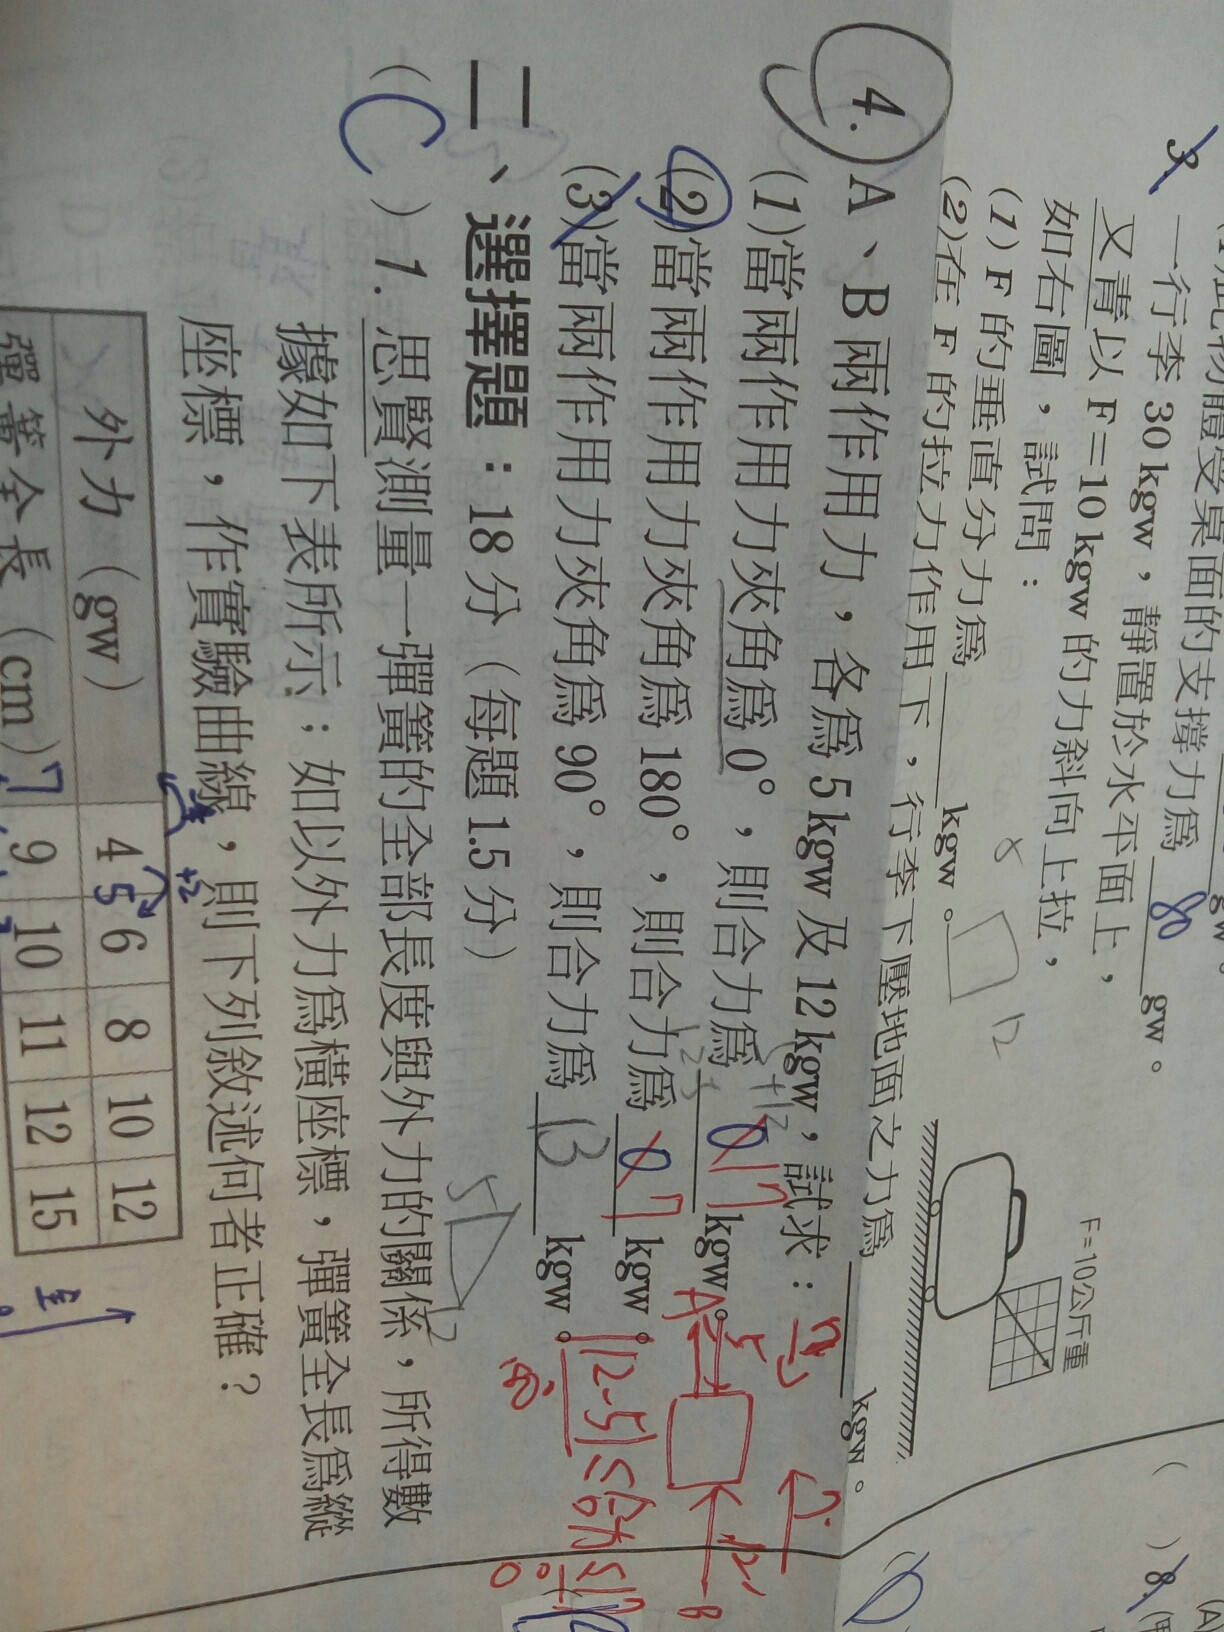 物體受桌面的支撐力為 80 gw。
3. 一行李 30 kgw，靜置於水平面上，
又青以 F=10 kgw 的力斜向上拉，
如右圖，試問：
(1) F 的垂直分力為 kgw。
(2) 在 F 的拉力作用下，行李下壓地面之力為 kgw。
F=10公斤重
4. A、B 兩作用力，各為 5 kgw 及 12 kgw，試求：
(1) 當兩作用力夾角為 0°，則合力為 17 kgw。
(2) 當兩作用力夾角為 180°，則合力為 7 kgw。
(3) 當兩作用力夾角為 90°，則合力為 13 kgw。
5 12
A 5 12 B
|12-5|≤合力≤
二、選擇題：18 分（每題 1.5 分）
( C ) 1. 思賢測量一彈簧的全部長度與外力的關係，所得數
據如下表所示；如以外力為橫座標，彈簧全長為縱
座標，作實驗曲線，則下列敘述何者正確？
+2
外力（gw） 4 5 6 8 10 12
彈簧全長（cm） 7 9 10 11 12 15
( ) 8.
(A)